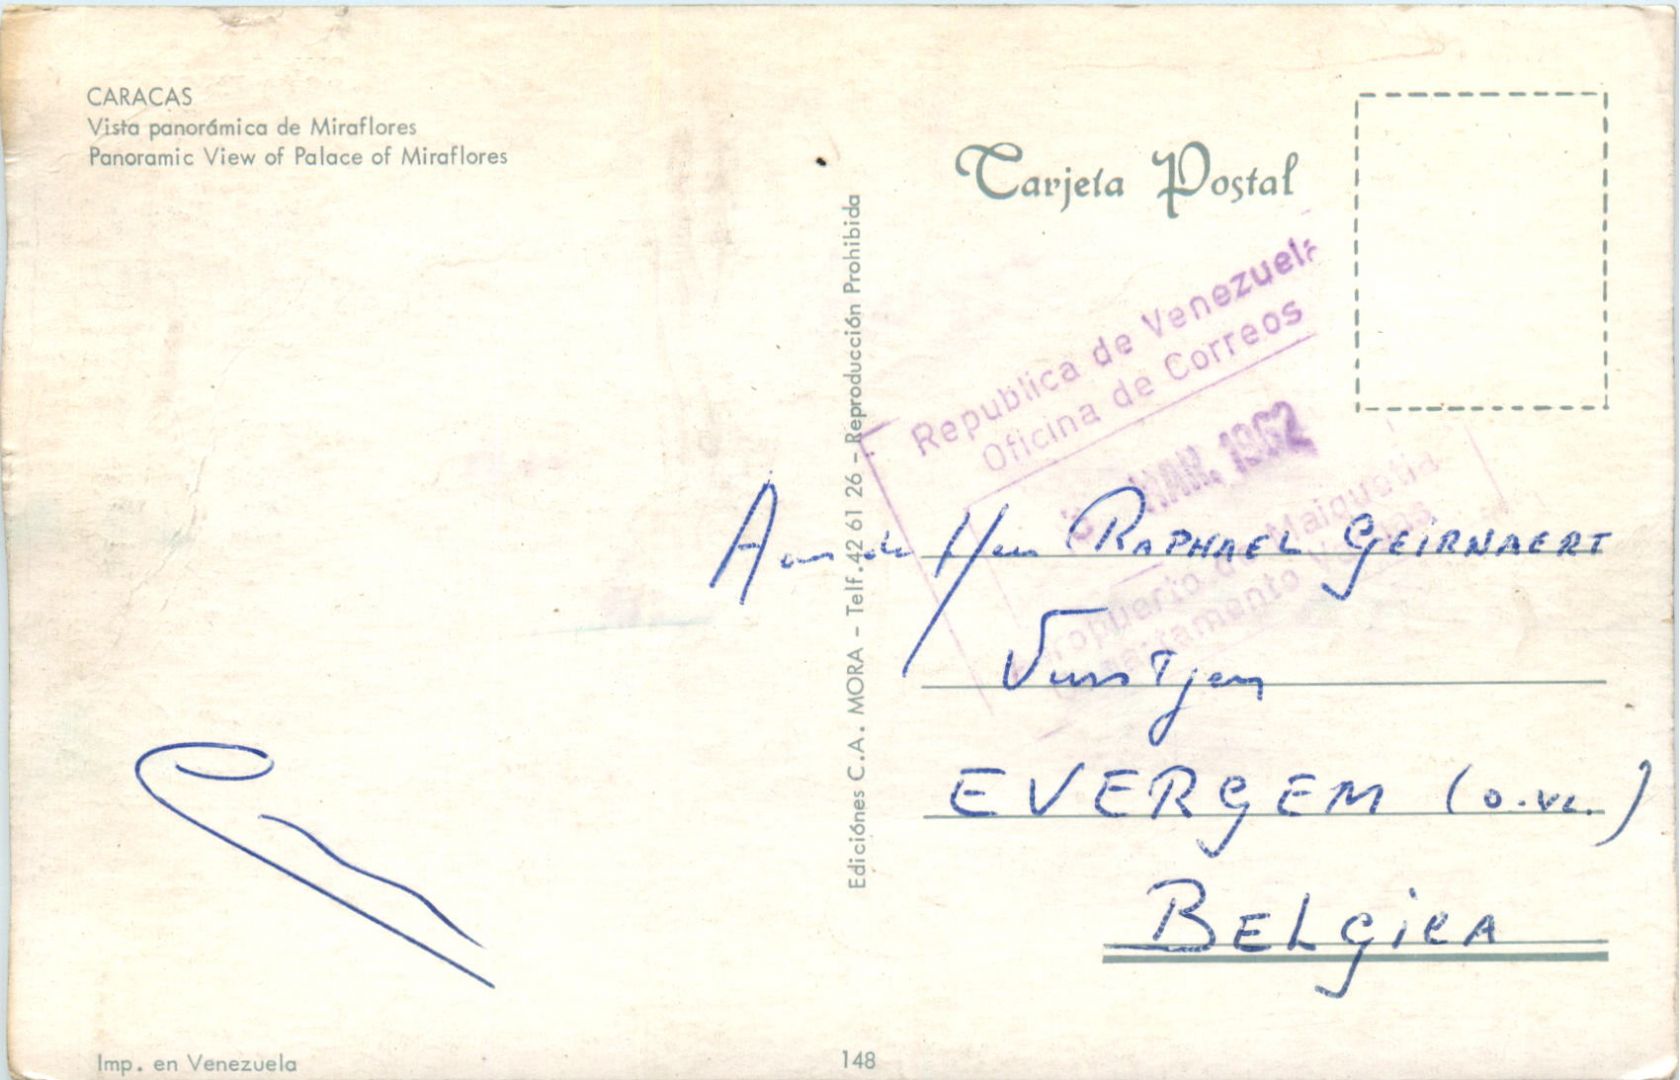 CARACAS
Vista panorámica de Miraflores
Panoramic View of Palace of Miraflores
Tarjeta Postal
Republica de Venezuela
Oficina de Correos
MAR. 1962
Maiquetia
Ediciónes C.A. MORA - Telf. 42 61 26 - Reproducción Prohibida
Aan de Heer RAPHAEL GEIRNAERT
EVERGEM (O.VL.)
BELGICA
Imp. en Venezuela
148